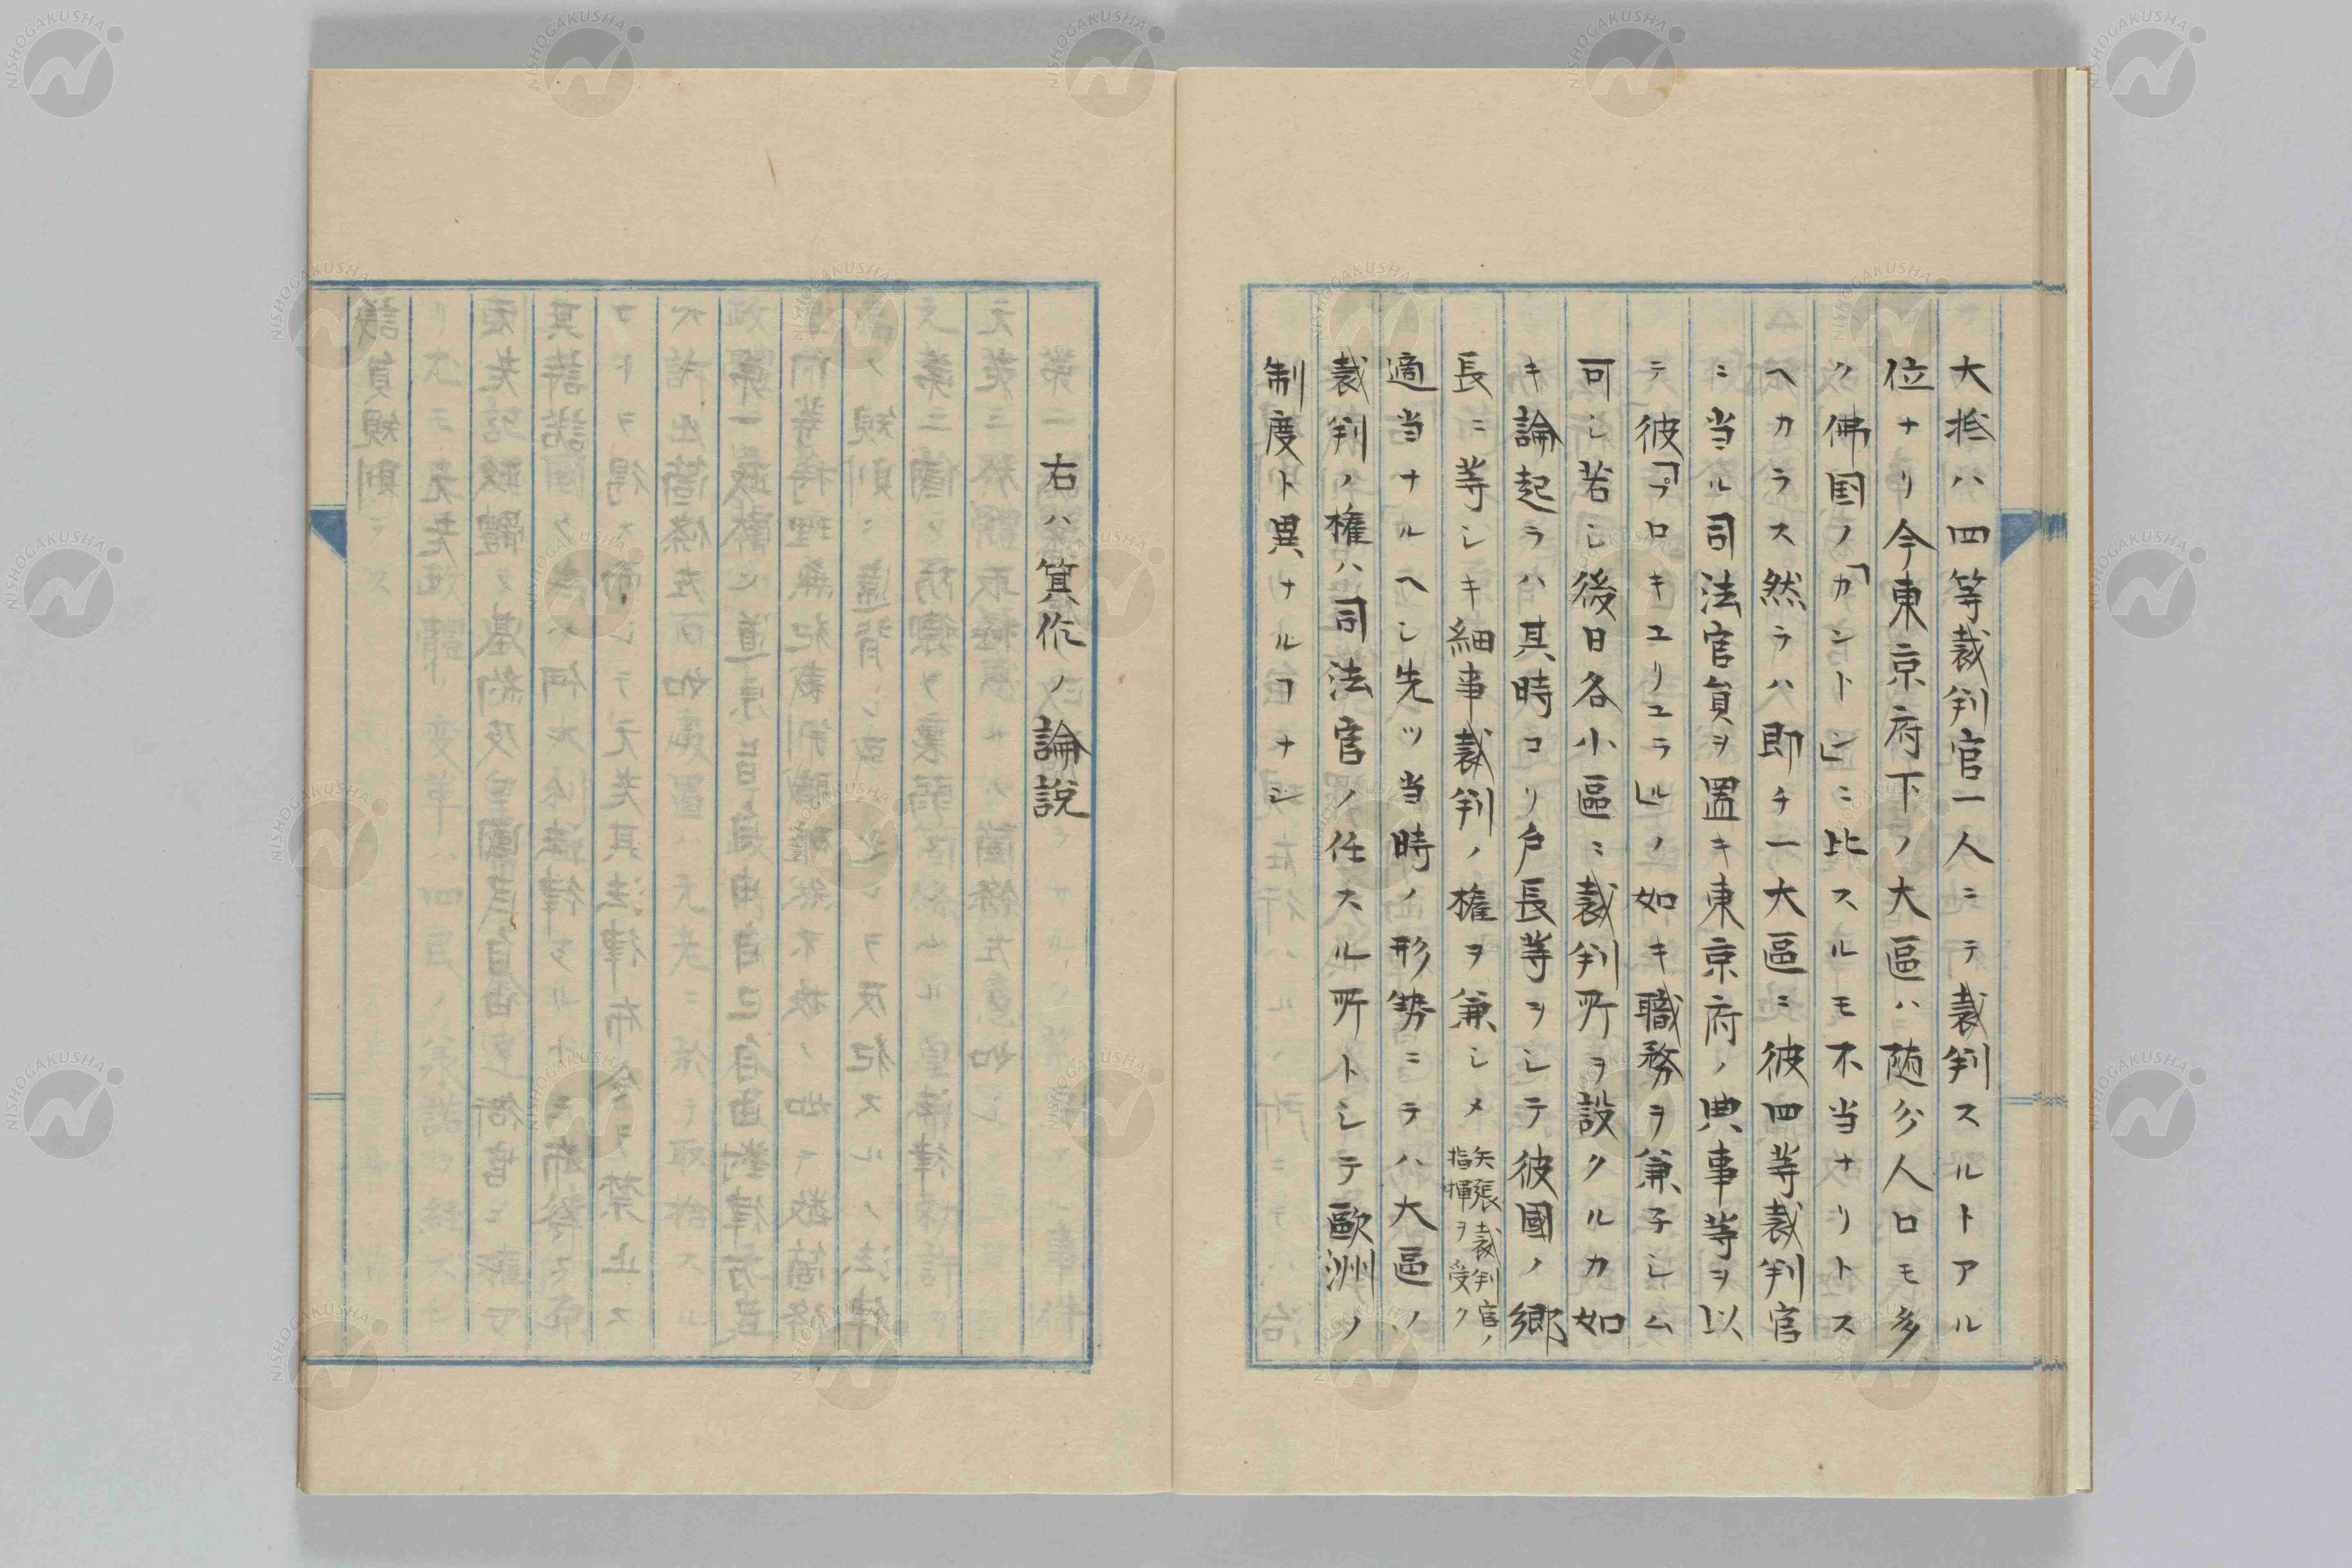 大抵ハ四等裁判官一人ニテ裁判スルトアル
位ナリ今東京府下ノ大區ハ随分人口モ多
ク佛国ノ「カントン」ニ比スルモ不当ナリトス
ヘカラス然ラハ即チ一大區ニ彼四等裁判官
ニ当ル司法官員ヲ置キ東京府ノ典事等ヲ以
テ彼「プロキユリユラル」ノ如キ職務ヲ兼子シム
可シ若シ後日各小區ニ裁判所ヲ設クルカ如
キ論起ラハ其時コリ戸長等ヲシテ彼國ノ郷
長ニ等シキ細事裁判ノ権ヲ兼シメ矢張裁判官ノ
指揮ヲ受ク
適当ナルヘシ先ツ当時ノ形勢ニテハ大區ノ
裁判ノ権ハ司法官ノ任スル所トシテ歐洲ノ
制度ト異ナルコナシ
右ハ箕作ノ論説
NISHOGAKUSHA